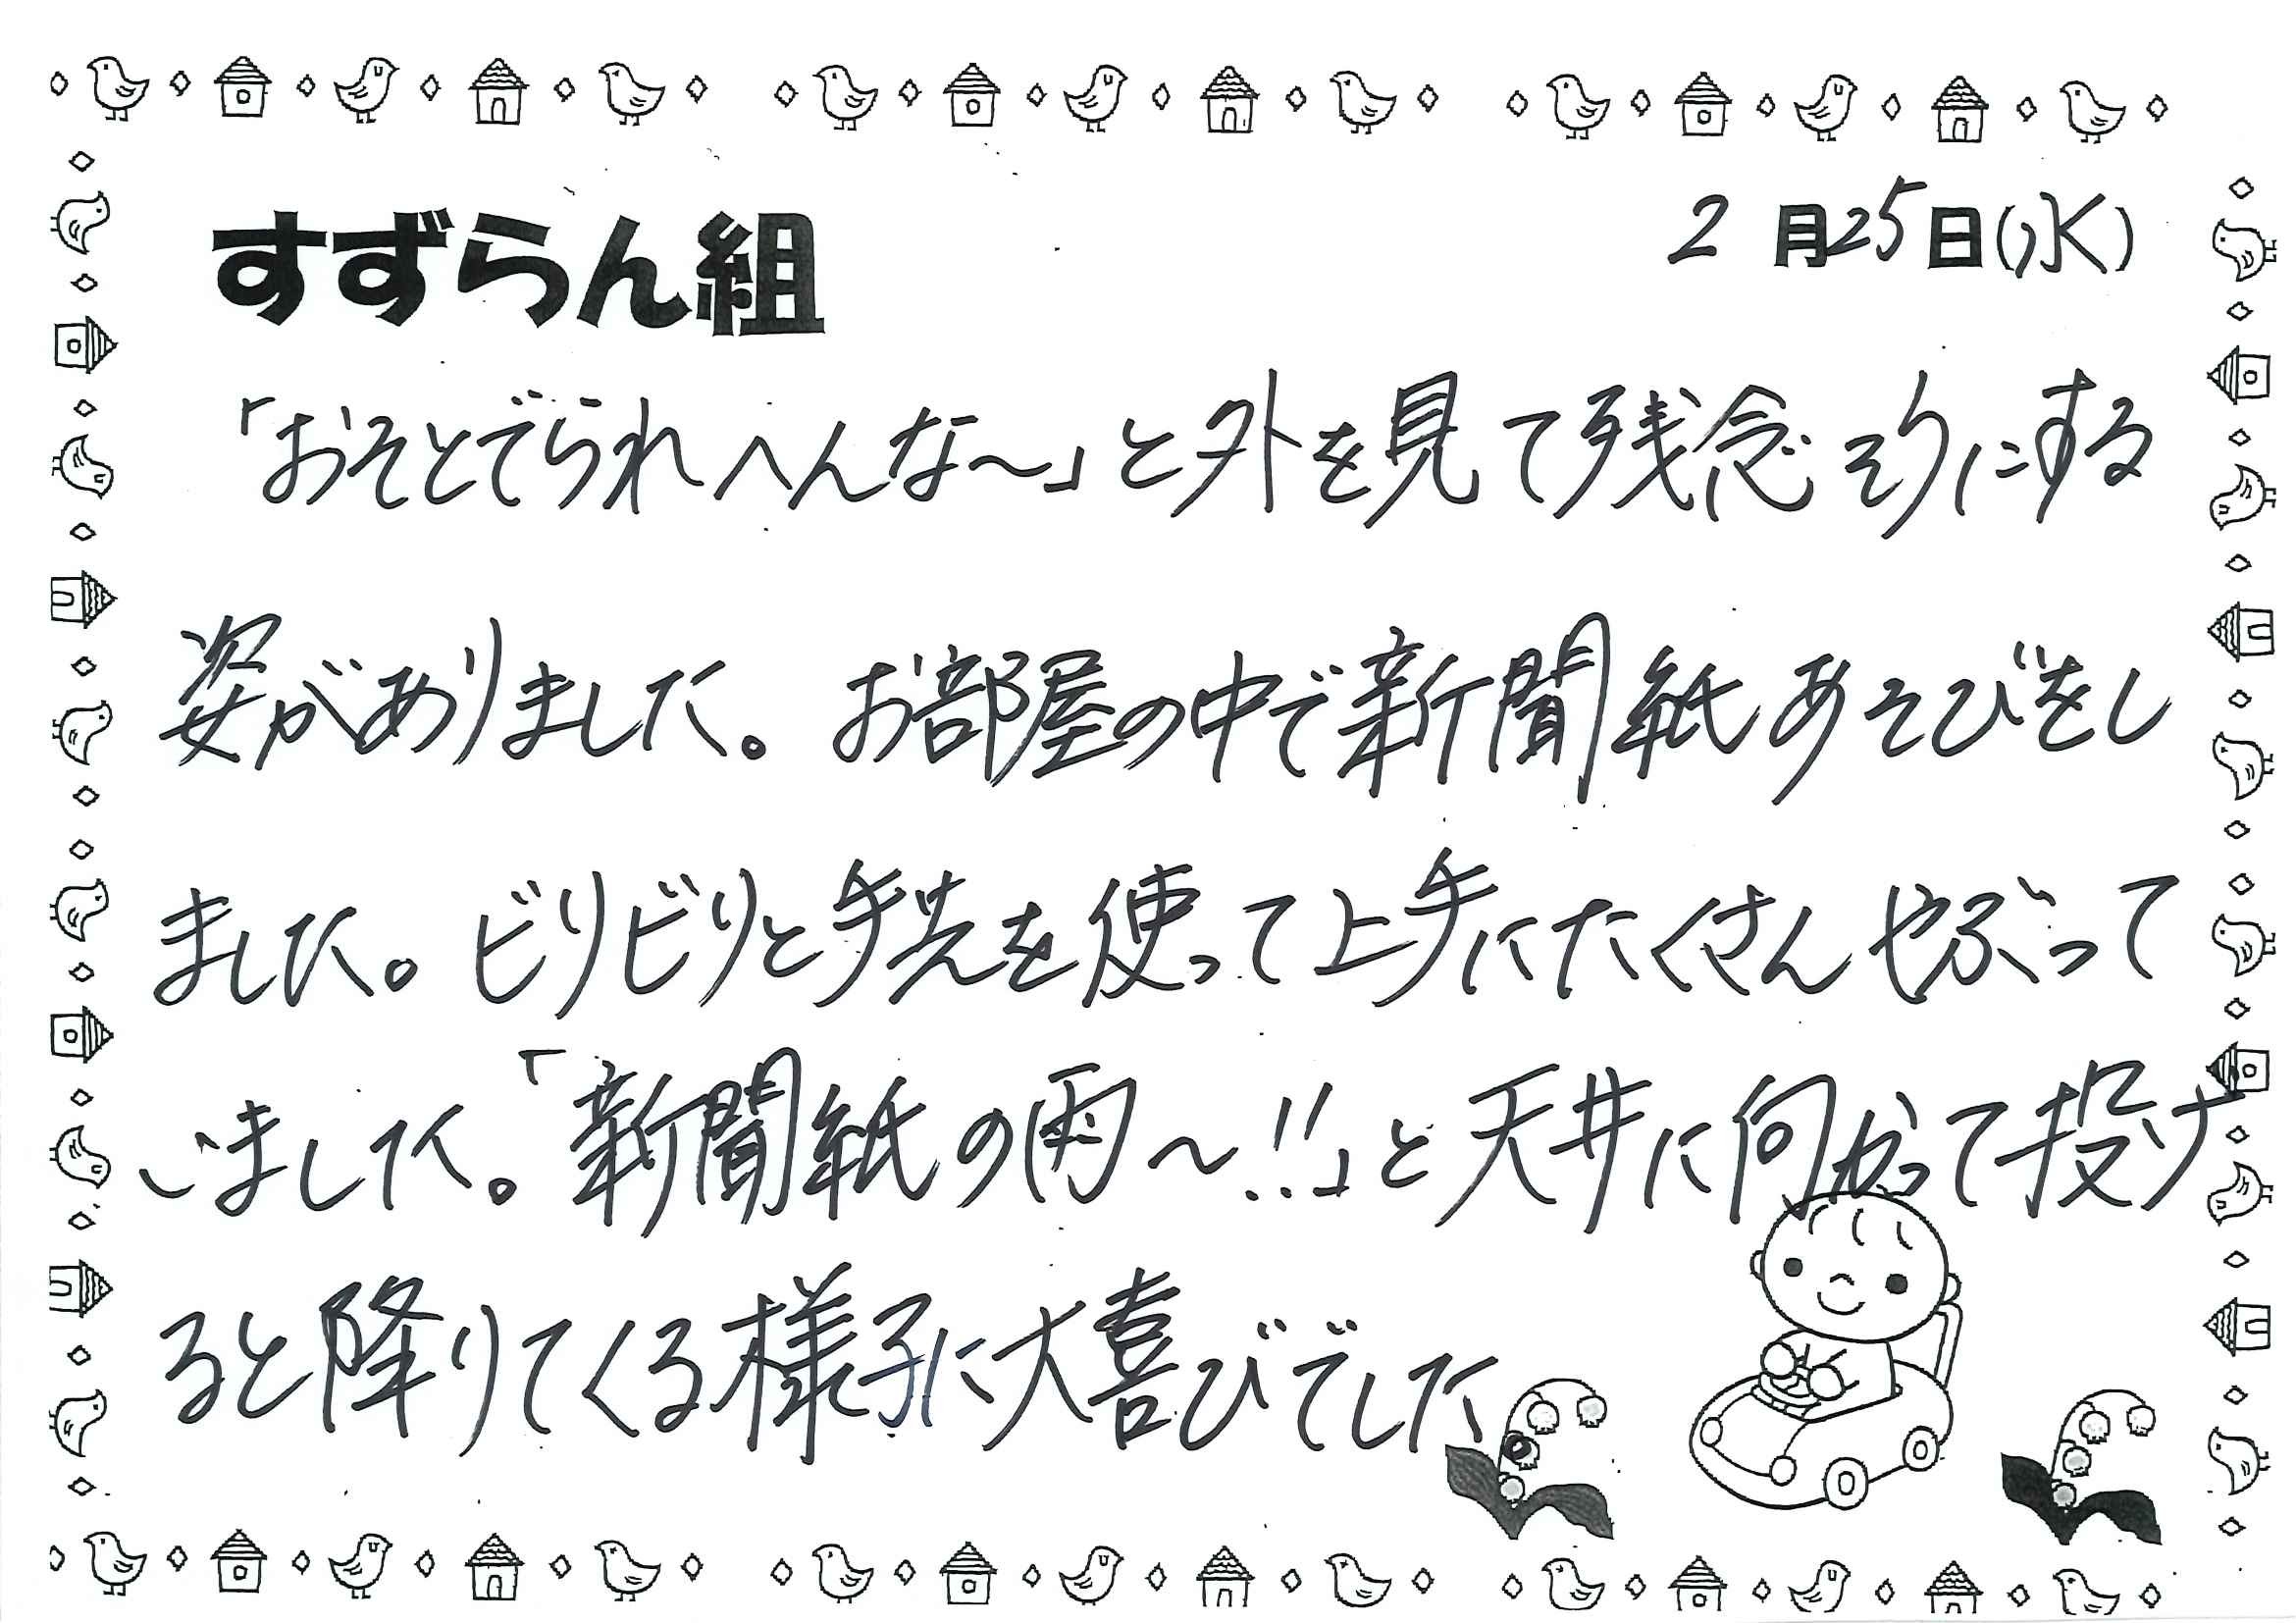 すずらん組
2月25日(水)
「おそとでられへんな〜」と外を見て残念そうにする
姿がありました。お部屋の中で新聞紙あそびをし
ました。ビリビリと手先を使って上手にたくさんやぶって
いました。「新聞紙の雨〜!!」と天井に向かって投げ
ると降りてくる様子に大喜びでした。